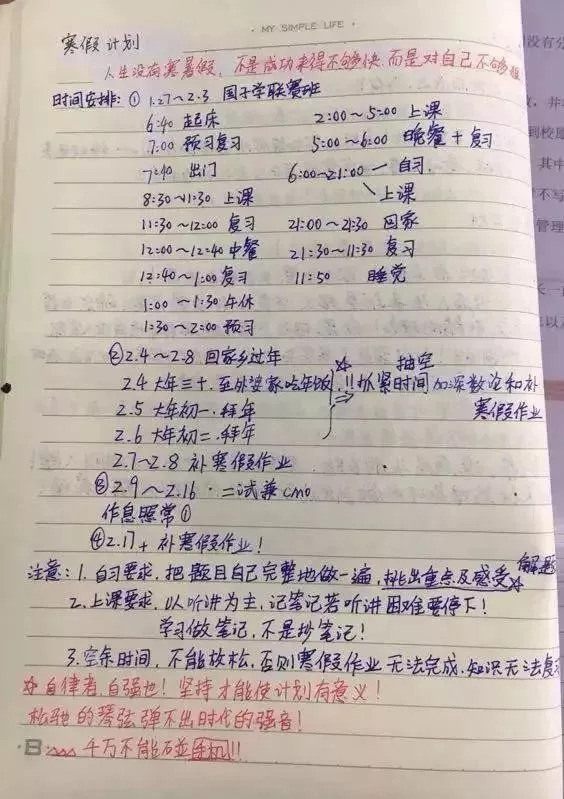 · MY SIMPLE LIFE ·
寒假计划
人生没有寒暑假，不是成功来得不够快，而是对自己不够狠
时间安排：① 1.27～2.3 国子学联赛班
6:40 起床 2:00～5:00 上课
7:00 预习复习 5:00～6:00 晚餐+复习
7:40 出门 6:00～21:00 自习
上课
8:30～11:30 上课
11:30～12:00 复习 21:00～21:30 回家
12:00～12:40 中餐 21:30～11:30 复习
12:40～1:00 复习 11:50 睡觉
1:00～1:30 午休
1:30～2:00 预习
② 2.4～2.8 回家乡过年
2.4 大年三十，至外婆家吃年饭 ☆!! 抽空
抓紧时间 加深数论和补
2.5 大年初一，拜年 寒假作业
2.6 大年初二，拜年
2.7～2.8 补寒假作业
③ 2.9～2.16 · 二试兼cmo
作息照常①
④ 2.17+ 补寒假作业！
注意：1. 自习要求，把题目自己完整地做一遍，挑出重点及感受☆ 解题
2. 上课要求，以听讲为主，记笔记若听讲困难要停下！
学习做笔记，不是抄笔记！
3. 空余时间，不能放松，否则寒假作业无法完成，知识无法复
☆ 自律者，自强也！坚持才能使计划有意义！
松弛的琴弦弹不出时代的强音！
千万不能碰手机!!!